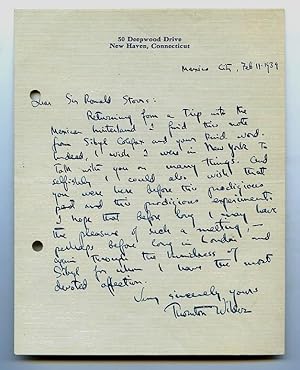 50 Deepwood Drive
New Haven, Connecticut
Mexico City, Feb 11 · 1939
Dear Sir Ronald Storrs:
Returning from a Trip into the
Mexican hinterland I find this note
from Sibyl Colefax and your kind word.
Indeed, I wish I were in New York to
talk with you on many things. And
selfishly I could also wish that
you were here before this prodigious
past and this prodigious experiment.
I hope that before long I may have
the pleasure of such a meeting, —
perhaps before long in London and
again through the kindness of
Sibyl for whom I have the most
devoted affection.
Very sincerely yours
Thornton Wilder